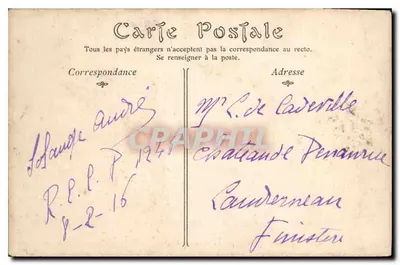 Carte Postale
Tous les pays étrangers n'acceptent pas la correspondance au recto.
Se renseigner à la poste.
Correspondance
Adresse
Solange André
R.E.C.P. 124
8-2-16
Mr L. de Cadeville
Château de
Landerneau
Finistère
CPAPHIL